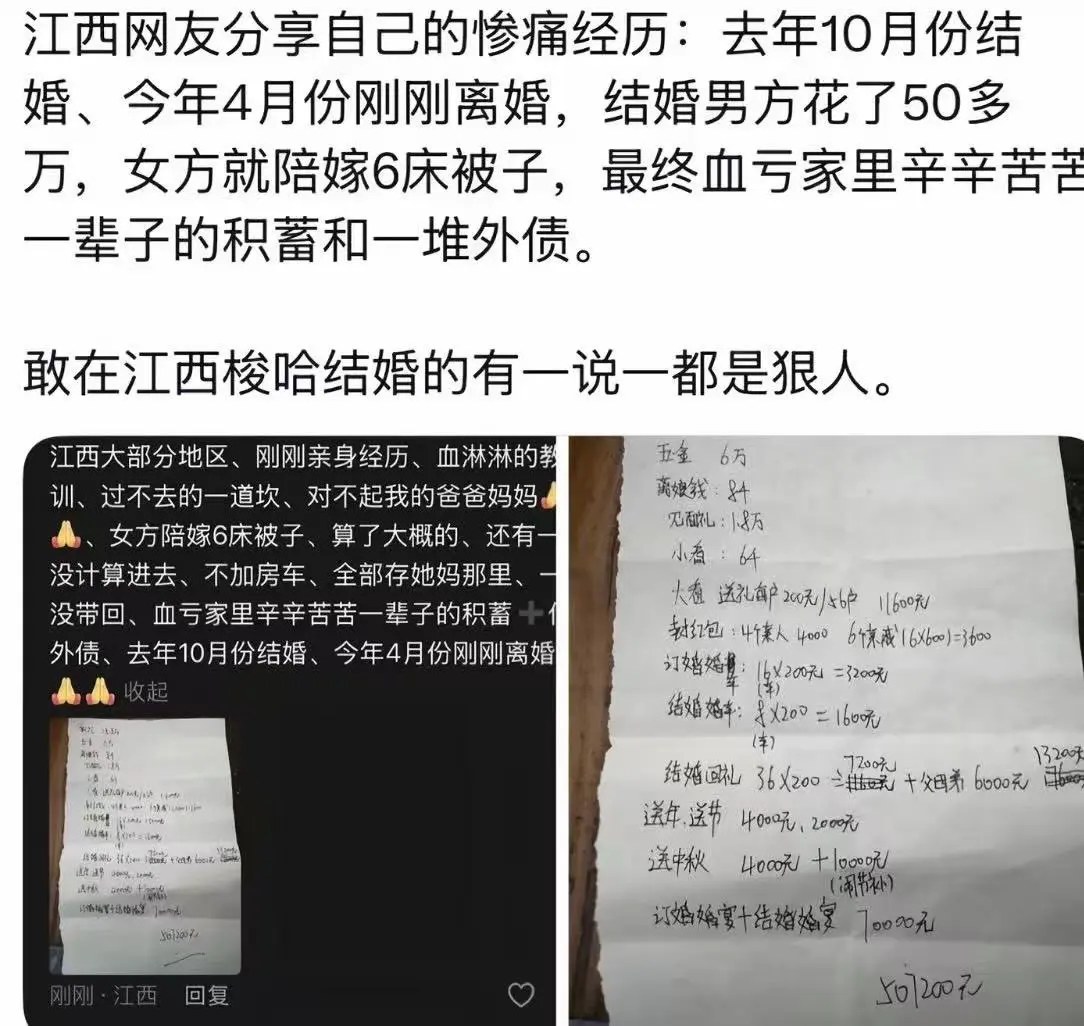 江西网友分享自己的惨痛经历：去年10月份结
婚、今年4月份刚刚离婚，结婚男方花了50多
万，女方就陪嫁6床被子，最终血亏家里辛辛苦苦
一辈子的积蓄和一堆外债。
敢在江西梭哈结婚的有一说一都是狠人。
江西大部分地区、刚刚亲身经历、血淋淋的教
训、过不去的一道坎、对不起我的爸爸妈妈🙏
🙏、女方陪嫁6床被子、算了大概的、还有一
没计算进去、不加房车、全部存她妈那里、一
没带回、血亏家里辛辛苦苦一辈子的积蓄➕
外债、去年10月份结婚、今年4月份刚刚离婚
🙏🙏 收起
刚刚·江西 回复
五金 6万
离娘钱：8千
见面礼：1.8万
小看：6千
大看 送礼每户200元/58户 11600元
封红包：4个家人 4000 6个亲戚(6×600)=3600
订婚婚车：16×200元=3200元
(车)
结婚婚车：8×200=1600元
(车)
结婚回礼 36×200=7200元+父母弟6000元 13200元
送年、送节 4000元、2000元
送中秋 4000元+10000元
订婚婚宴+结婚婚宴 70000元
507200元